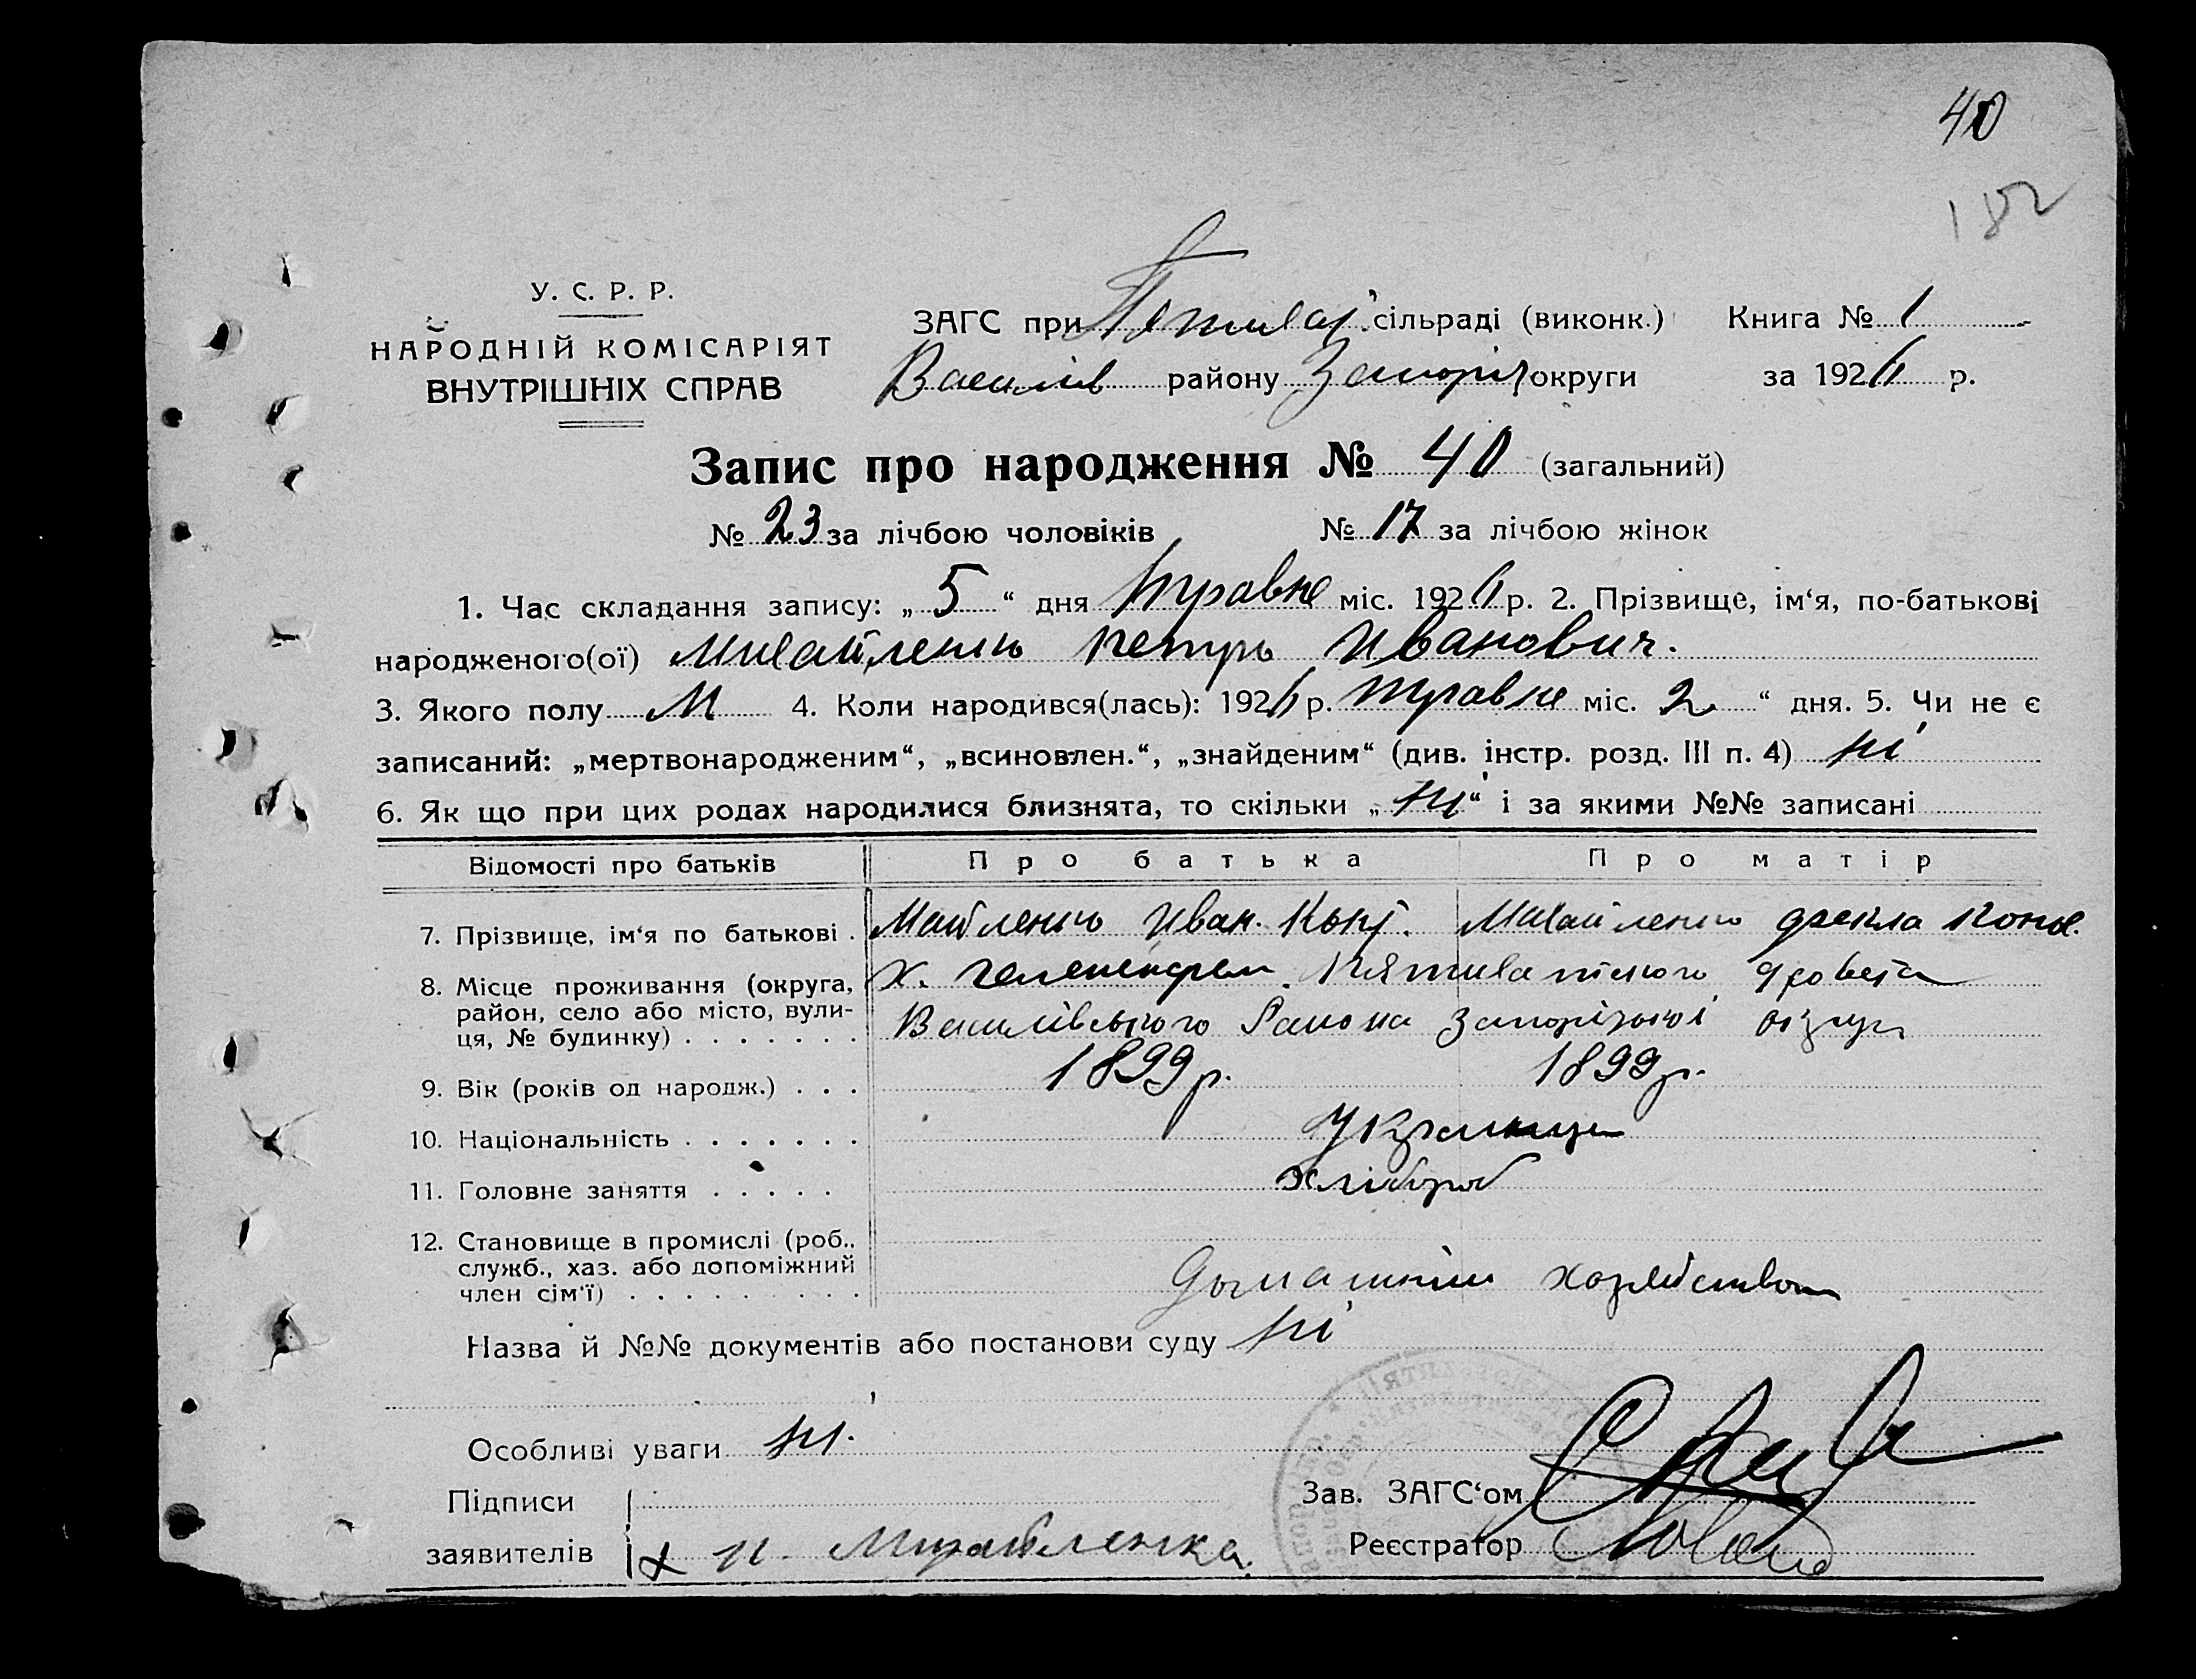 40
182
У. С. Р. Р.
НАРОДНІЙ КОМІСАРІЯТ
ВНУТРІШНІХ СПРАВ
ЗАГС при сільраді (виконк.) Книга № 1
Василів району Запоріз округи за 1926 р.
Запис про народження № 40 (загальний)
№ 23 за лічбою чоловіків № 17 за лічбою жінок
1. Час складання запису: „ 5 “ дня травня міс. 1926 р. 2. Прізвище, ім‘я, по-батькові
народженого(ої) Михайленко Петро Иванович.
3. Якого полу М 4. Коли народився(лась): 1926 р. травня міс. 2 “ дня. 5. Чи не є
записаний: „мертвонародженим“, „всиновлен.“, „знайденим“ (див. інстр. розд. III п. 4) ні
6. Як що при цих родах народилися близнята, то скільки „ ні “ і за якими №№ записані
Відомості про батьків Про батька Про матір
7. Прізвище, ім‘я по батькові . Иван. Михайленко Фекла
8. Місце проживання (округа, х.
район, село або місто, вули- Василівського Району Запорізької округи
ця, № будинку) . . . . . . .
9. Вік (років од народж.) . . . 1899 р. 1899 р.
10. Національність . . . . . . . Українці
11. Головне заняття . . . . . хлібороб
12. Становище в промислі (роб.,
служб., хаз. або допоміжний
член сім‘ї) . . . . . . . . . хозяйством
Назва й №№ документів або постанови суду ні
Особливі уваги ні.
Підписи
Зав. ЗАГС‘ом
заявителів И. Михайленка.
Реєстратор